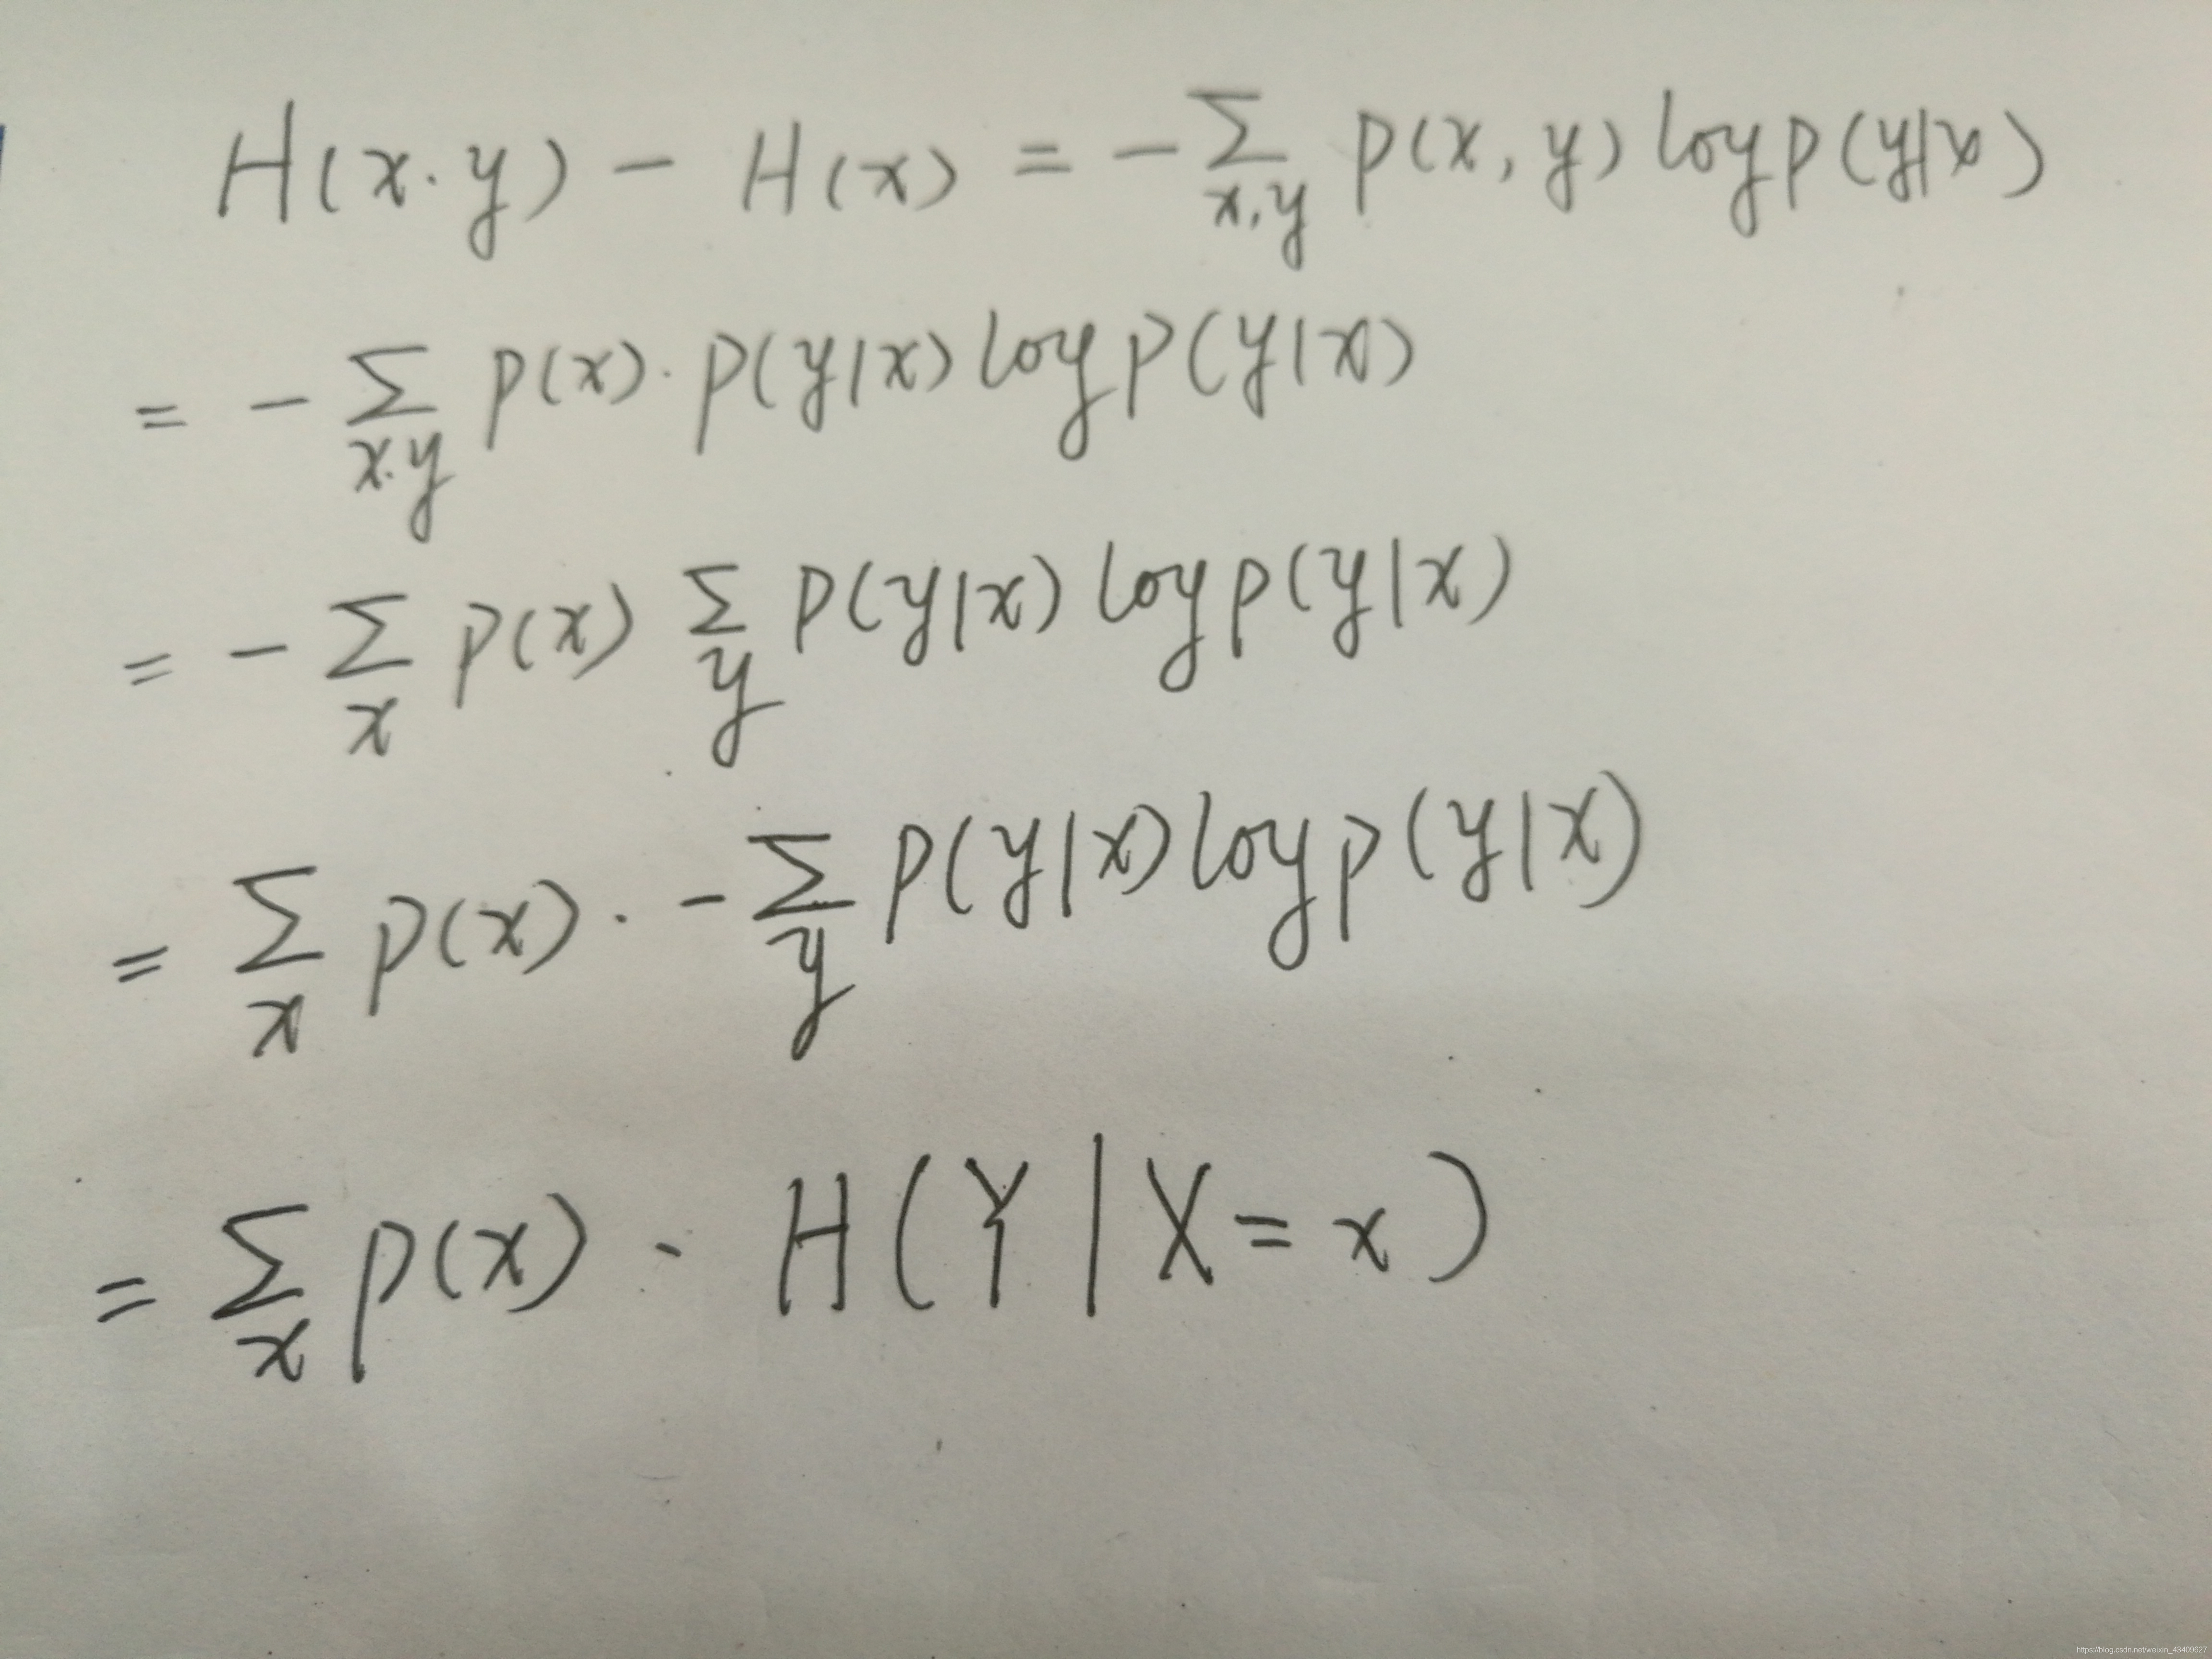 H(x.y) - H(x) = -∑_{x,y} p(x,y) log p(y|x)
= -∑_{x.y} p(x)·p(y|x) log p(y|x)
= -∑_x p(x) ∑_y p(y|x) log p(y|x)
= ∑_x p(x)· -∑_y p(y|x) log p(y|x)
= ∑_x p(x) · H(Y|X=x)
https://blog.csdn.net/weixin_43409627